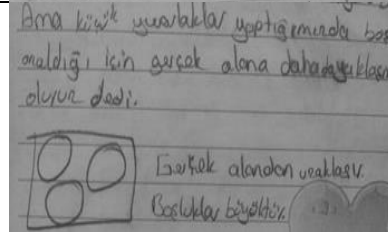 Ama küçük yuvarlaklar yaptığımızda boş
azaldığı için gerçek alana daha da yaklaşı
oluruz dedi.
Gerçek alandan uzaklaşır.
Boşluklar büyüktür.